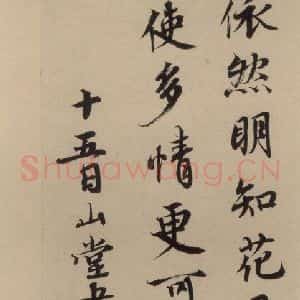 依然明知花
使多情更可
十五日山堂
Shufawang.CN